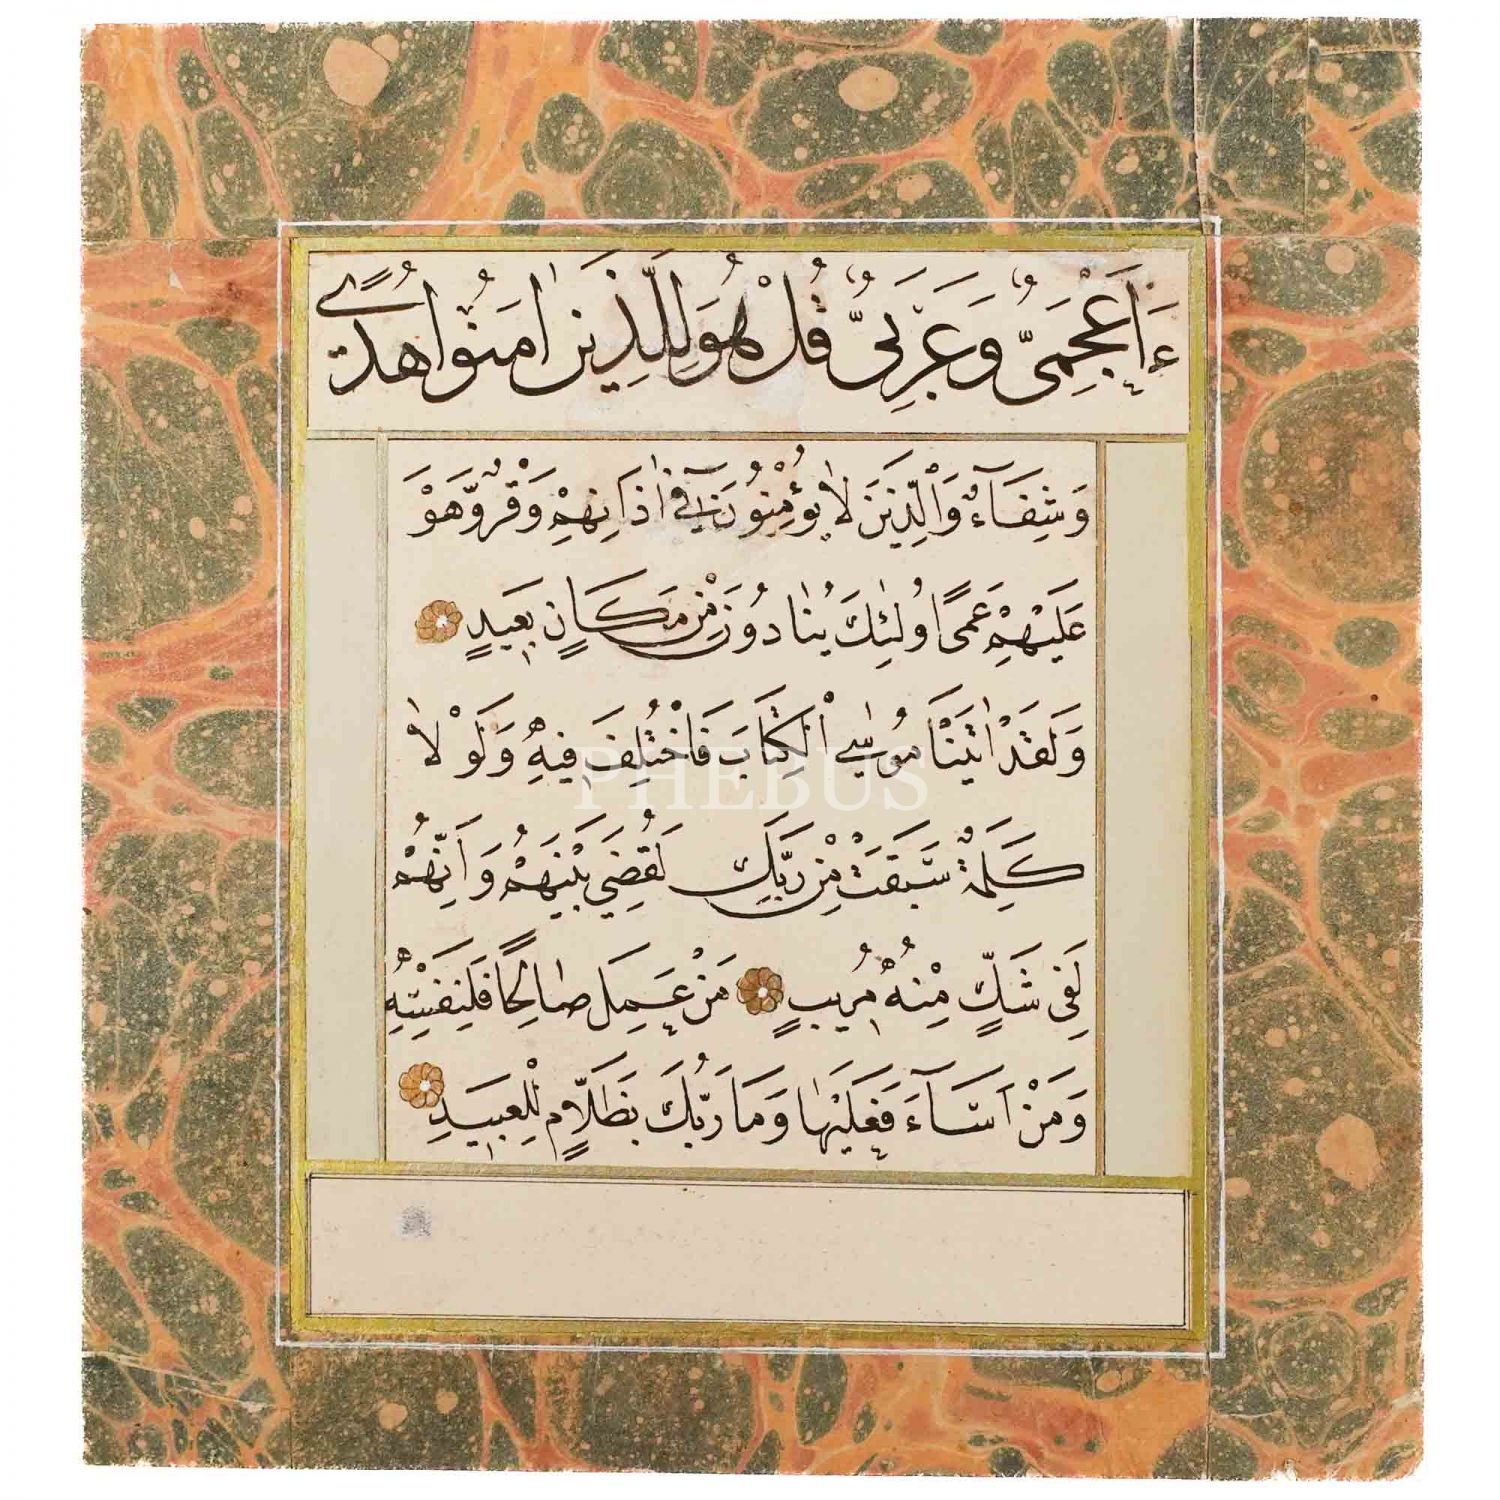 ءَاَعْجَمِىٌّ وَعَرَبِىٌّ قُلْ هُوَ لِلَّذِينَ اٰمَنُوا هُدًى
وَشِفَآءٌ وَالَّذِينَ لَا يُؤْمِنُونَ فِىٓ اٰذَانِهِمْ وَقْرٌ وَهُوَ
عَلَيْهِمْ عَمًى اُولٰئِكَ يُنَادَوْنَ مِنْ مَكَانٍ بَعِيدٍ
وَلَقَدْ اٰتَيْنَا مُوسَى الْكِتَابَ فَاخْتُلِفَ فِيهِ وَلَوْلَا
كَلِمَةٌ سَبَقَتْ مِنْ رَبِّكَ لَقُضِىَ بَيْنَهُمْ وَاِنَّهُمْ
لَفِى شَكٍّ مِنْهُ مُرِيبٍ مَنْ عَمِلَ صَالِحًا فَلِنَفْسِهِ
وَمَنْ اَسَآءَ فَعَلَيْهَا وَمَا رَبُّكَ بِظَلَّامٍ لِلْعَبِيدِ
PHEBUS